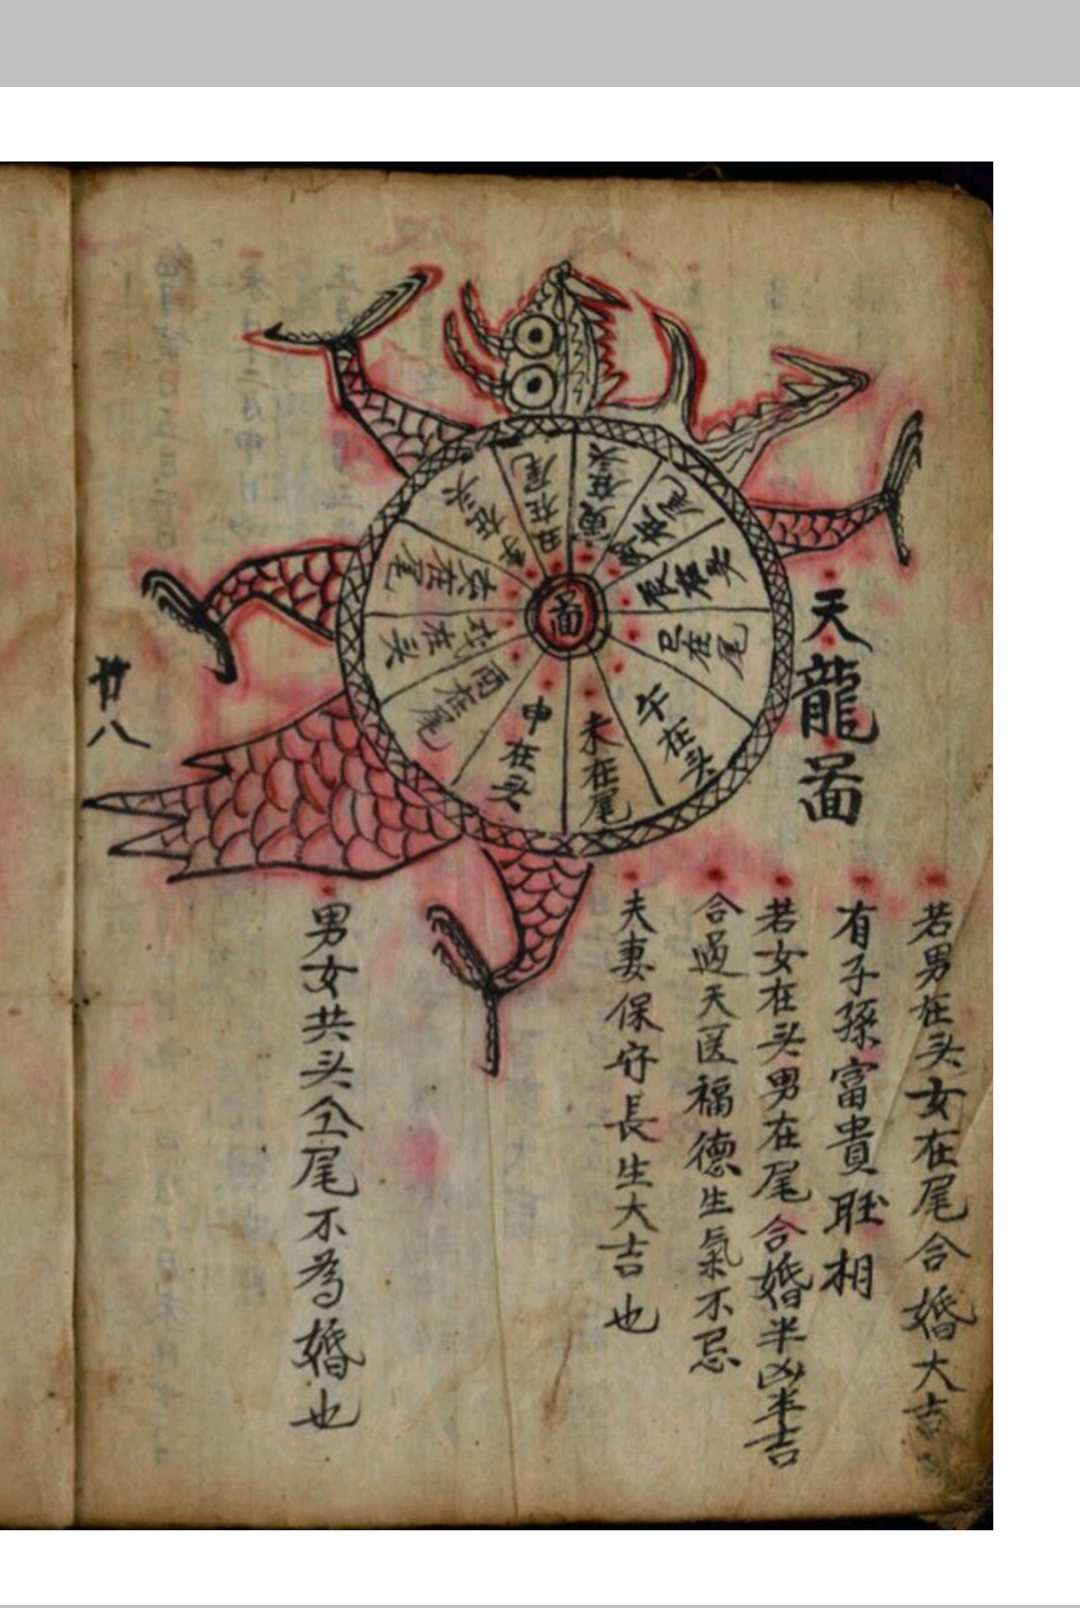 天龍啚
啚
子在头
丑在尾
寅在头
卯在尾
辰在头
巳在尾
午在头
未在尾
申在头
酉在尾
戌在头
亥在尾
若男在头女在尾合婚大吉
有子孫富貴 相
若女在头男在尾合婚半凶半吉
合過天医福德生氣不忌
夫妻保守長生大吉也
男女共头仝尾不為婚也
廿八